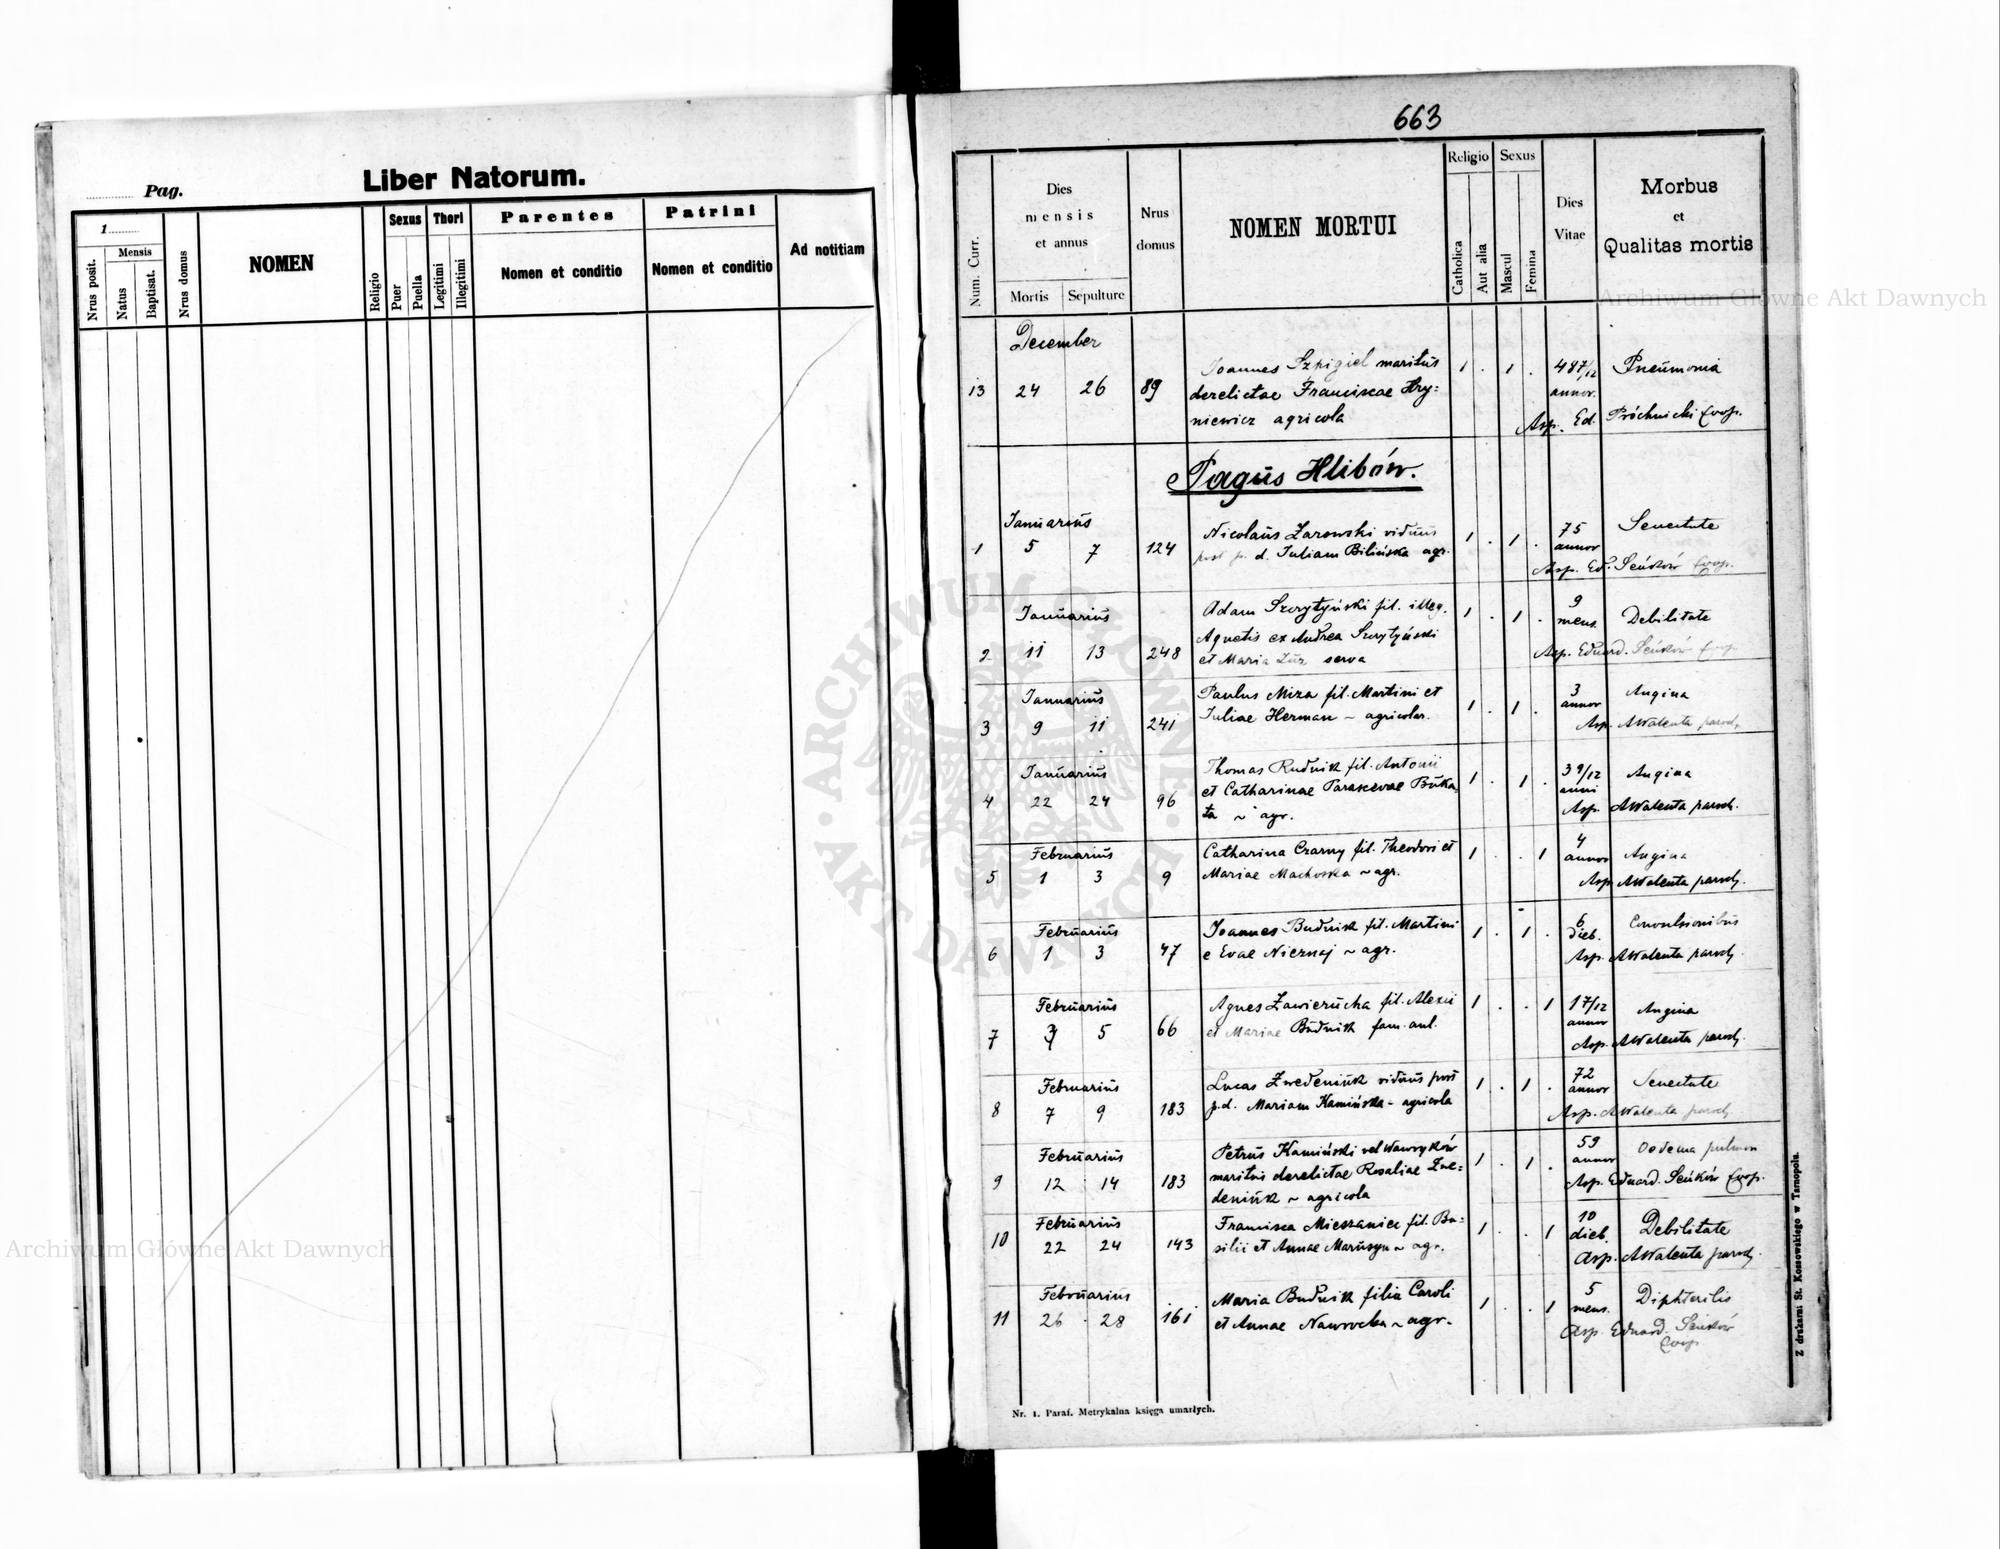 Pag.
Liber Natorum.
1
Nrus posit.
Mensis
Natus
Baptisat.
Nrus domus
NOMEN
Religio
Sexus
Puer
Puella
Thori
Legitimi
Illegitimi
Parentes
Nomen et conditio
Patrini
Nomen et conditio
Ad notitiam
663
Num. Curr.
Dies
mensis
et annus
Mortis
Sepulture
Nrus
domus
NOMEN MORTUI
Religio
Catholica
Aut alia
Sexus
Mascul
Femina
Dies
Vitae
Morbus
et
Qualitas mortis
December
13 24 26 89 Joannes Szpigiel maritus 1 . 1 . 48 7/12 Pneumonia
derelictae Franciscae Hry= annor.
niewicz agricola Asp. Ed. Próchnicki Coop.
Pagus Hlibów.
Januarius
1 5 7 124 Nicolaus Żarowski viduus 1 . 1 . 75 annor Senectute
post p. d. Juliam Bilińska agr.
Asp. Ed. Seńków Coop.
Januarius
2 11 13 248 Adam Skrytyński fil. illeg. 1 . 1 . 9 mens. Debilitate
Agnetis ex Andrea Skrytyński
et Maria serva
Asp. Eduard. Seńków Coop
Januarius
3 9 11 241 Paulus Miza fil. Martini et 1 . 1 . 3 annor Angina
Juliae Herman ~ agricolar.
Asp. AWalenta paroch.
Januarius
4 22 24 96 Thomas Rudnik fil. Antonii 1 . 1 . 3 9/12 anni Angina
et Catharinae Parascevae Buka=
ta ~ agr.
Asp. AWalenta paroch.
Februarius
5 1 3 9 Catharina Czarny fil. Theodori et 1 . . 1 4 annor Angina
Mariae Machoska ~ agr.
Asp. AWalenta paroch.
Februarius
6 1 3 47 Joannes Budnik fil. Martini 1 . 1 . 6 dieb. Convulsionibus
e Evae Nieznaj ~ agr.
Asp. AWalenta paroch.
Februarius
7 3 5 66 Agnes Zawierucha fil. Alexii 1 . . 1 1 7/12 annor Angina
et Mariae Budnik fam. aul.
Asp. AWalenta paroch.
Februarius
8 7 9 183 Lucas Zwedeniuk viduus post 1 . 1 . 72 annor Senectute
p.d. Mariam Kamińska - agricola
Asp. AWalenta paroch.
Februarius
9 12 14 183 Petrus Kamiński vel Wawryków 1 . 1 . 59 annor Oedema pulmon
maritus derelictae Rosaliae Zwe=
deniuk ~ agricola
Asp. Eduard. Seńków Coop.
Februarius
10 22 24 143 Francisca Mieszaniec fil. Ba= 1 . . 1 10 dieb. Debilitate
silii et Annae Marusyn ~ agr.
Asp. AWalenta paroch.
Februarius
11 26 28 161 Maria Budnik filia Caroli 1 . . 1 5 mens. Diphterilis
et Annae Nawrocka ~ agr.
Asp. Eduard. Seńków
Coop.
Nr. 1. Paraf. Metrykalna księga umarłych.
Z drukarni St. Kossowskiego w Tarnopolu.
Archiwum Główne Akt Dawnych
Archiwum Główne Akt Dawnych
ARCHIWUM GŁÓWNE
AKT DAWNYCH